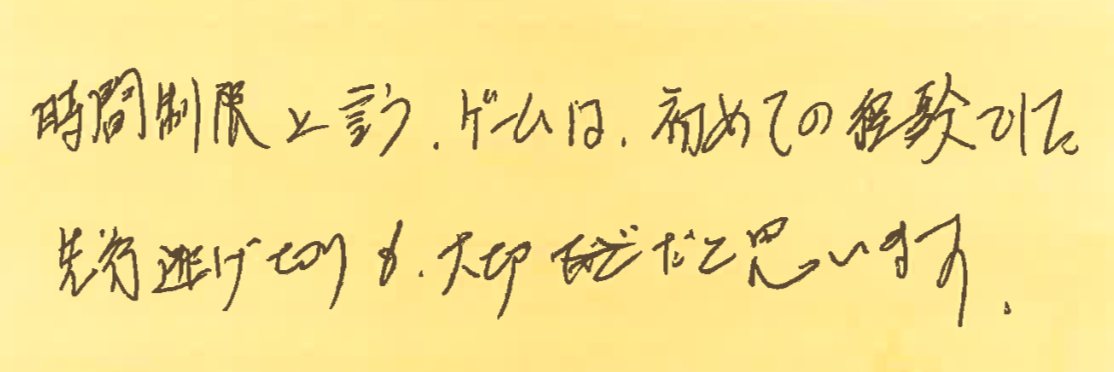 時間制限と言う、ゲームは、初めての経験でした
先行逃げ切りも、大切だと思います。